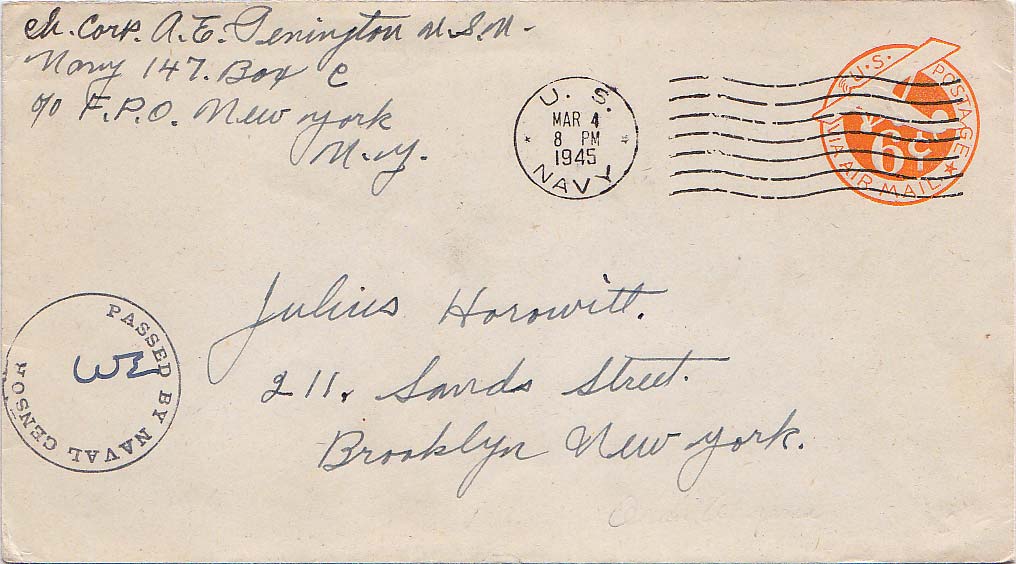 Ch. Corp. A. E. Penington U.S.N.
Navy 147. Box C
c/o F.P.O. New York
N.Y.
U. S.
MAR 4
8 PM
1945
NAVY
U.S. POSTAGE
6¢
VIA AIR MAIL
PASSED BY NAVAL CENSOR
Julius Horowitt.
211. Sands Street.
Brooklyn New York.